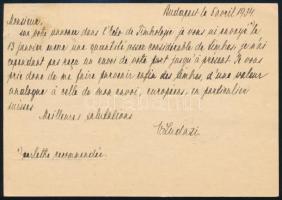 Budapest le 6 avril 1934
Monsieur,
sur votre annonce dans l'Echo de Timbrologie je vous ai envoyé le
13 janvier meme une quantité assez considerable de timbres, je n'ai
cependant pas reçu un envoi de votre part jusqu'à présent. Je vous
prie donc de me faire parvenir enfin des timbres d'une valeur
analogue à celle de mon envoi, européens, en particulier
suisses.
Meilleures salutations
par lettre recommandée